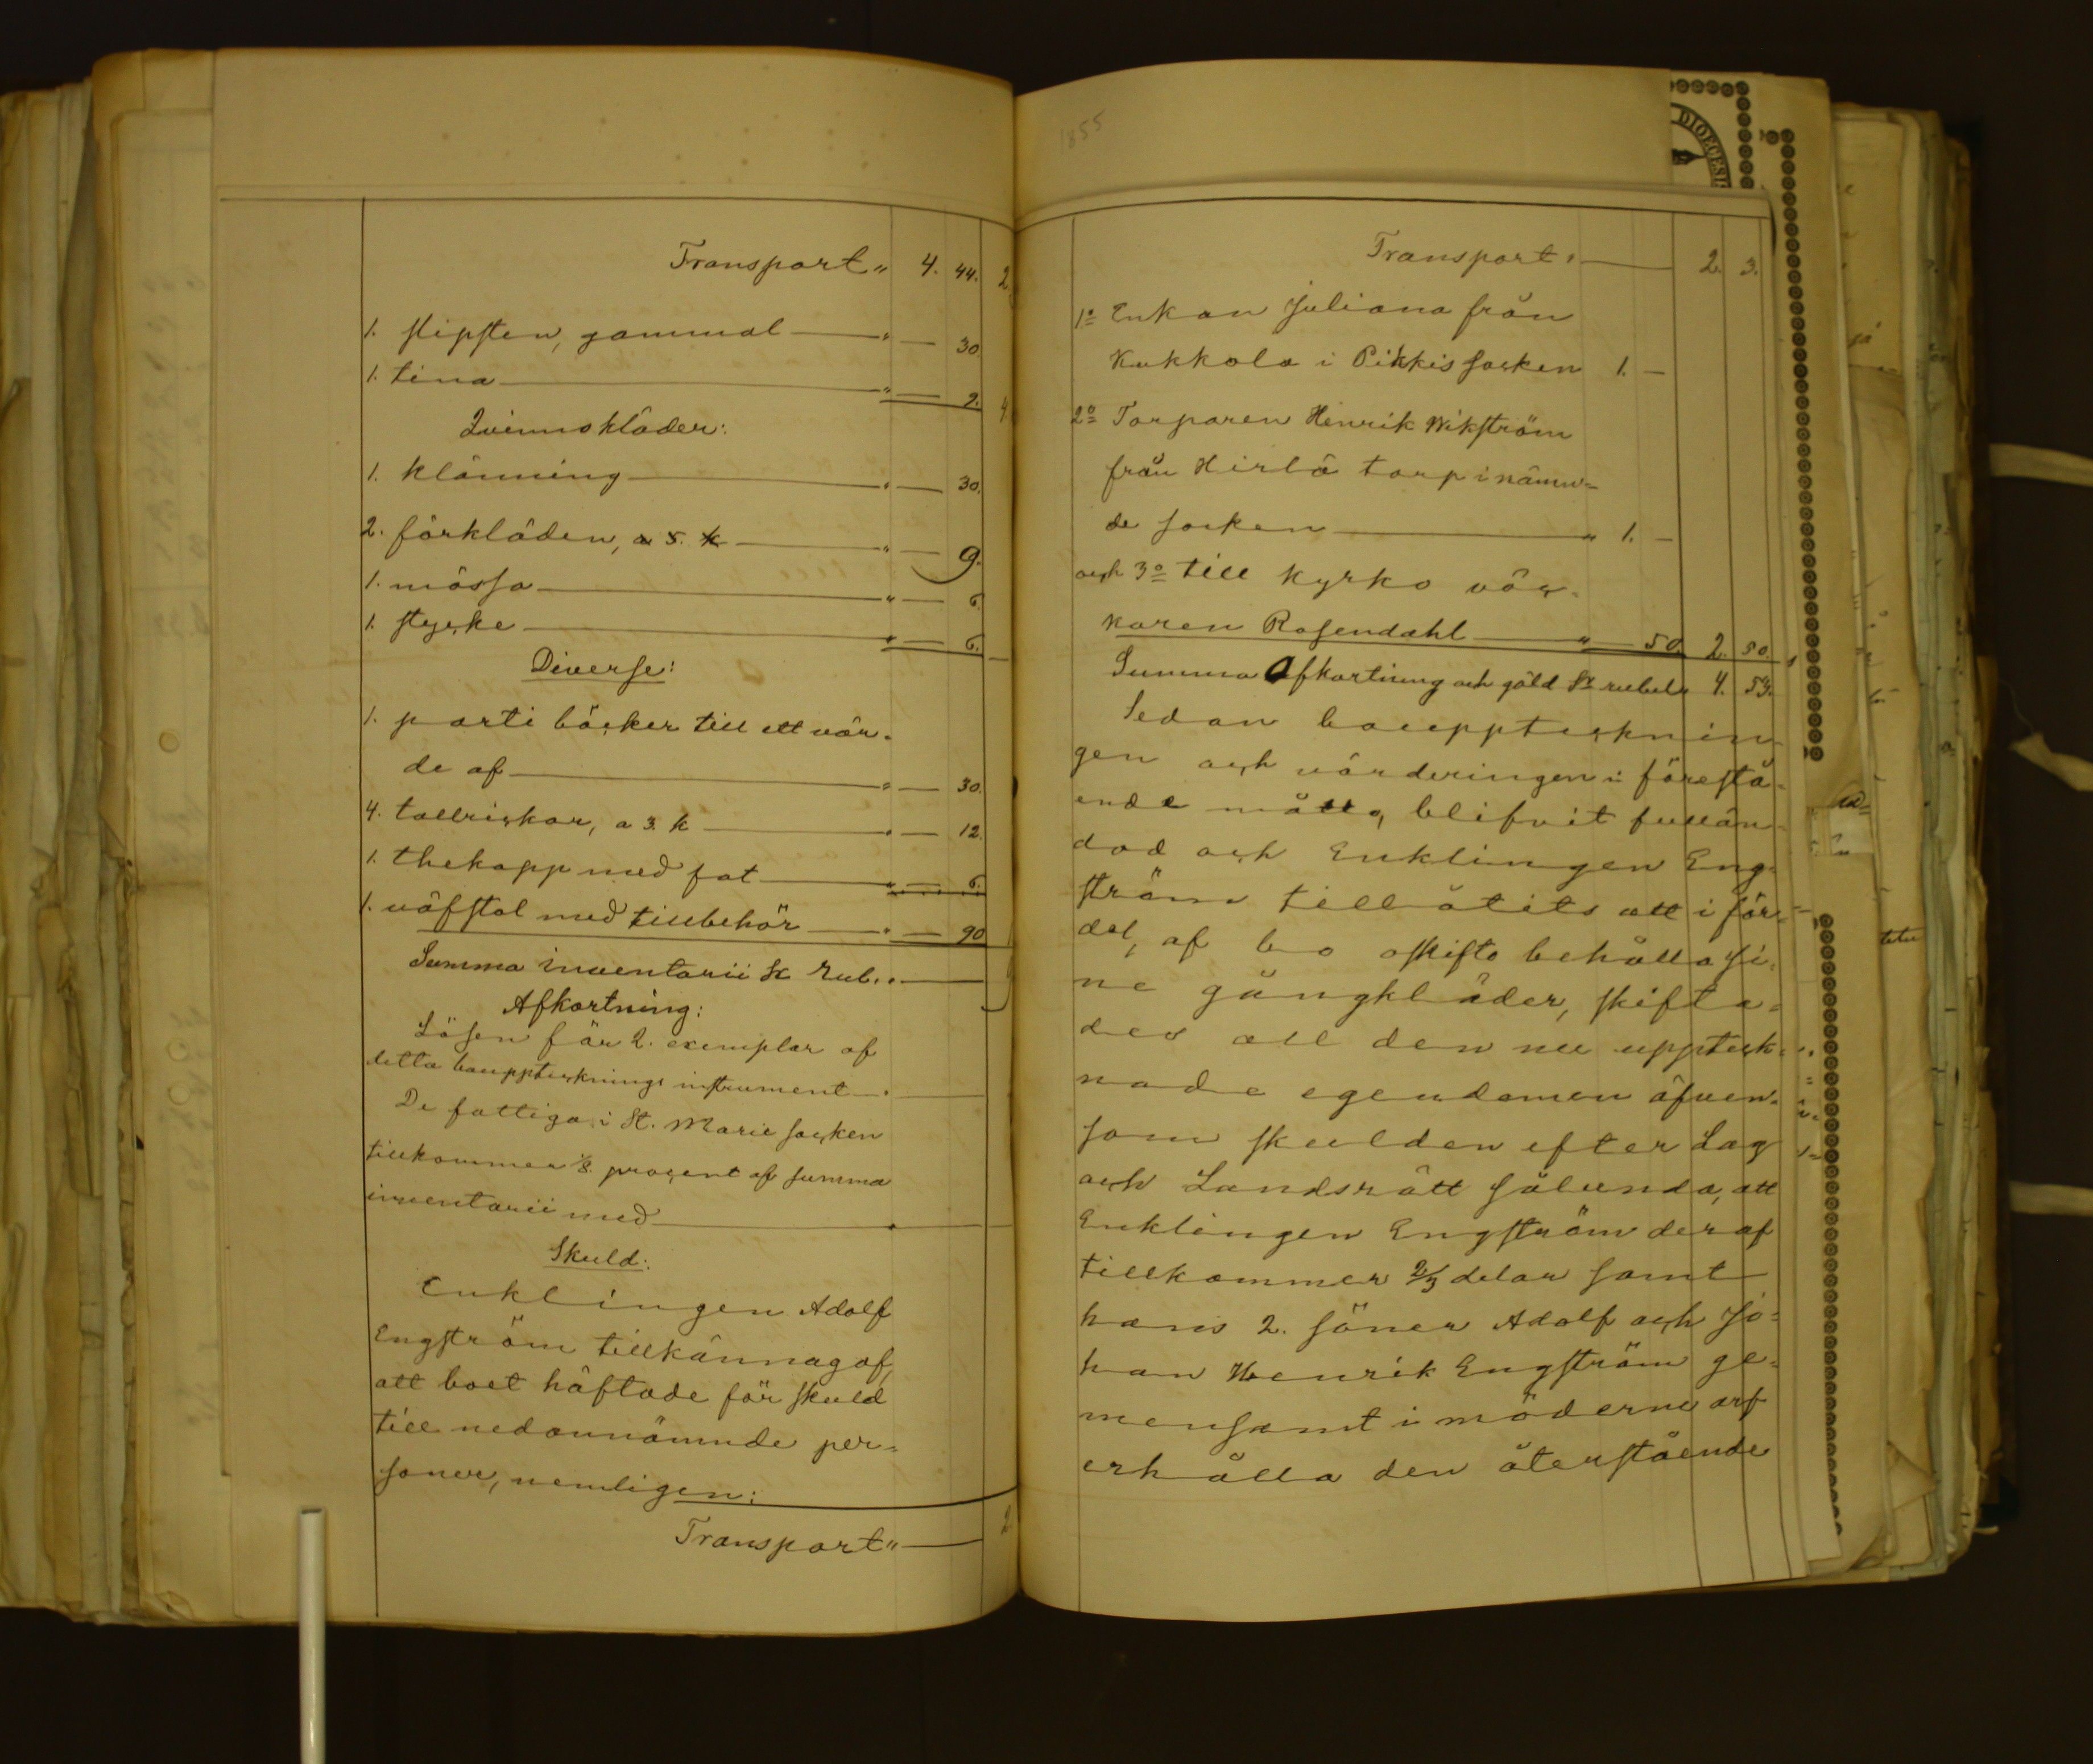 Transport „ 4. 44. 2.
1. slipsten, gammal — „ — 30.
1. tina — „ — 9. 4.
Qvinnokläder:
1. klänning — „ — 30.
2. förkläden, a 5. k — „ — 9.
1. mössa — „ — 6.
1. stycke — „ — 6.
Diverse:
1. parti böcker till ett vär-
de af — „ — 30.
4. tallrickar, a 3. k — „ — 12.
1. thekopp med fat — „ — 6.
1. väfstol med tillbehör — „ — 90
Summa inventarii Sr Rub. „ —
Afkortning:
Lösen för 2. exemplar af
detta boupptecknings instrument — „
De fattiga i St. Marie socken
tillkommer 1/8. procent af summa
inventarii med — „
Skuld:
Enklingen Adolf
Engström tillkännagaf,
att boet häftade för skuld
till nedannämnde per-
soner, nemligen:
Transport „ — 2.
1855
DIOECESIS
Transport „ — 2. 3.
1o Enkan Juliana från
Kukkola i Pikkis socken 1. —
2o Torparen Henrik Wikström
från Hirlä torp i nämn=
de socken — „ 1. —
och 3o till kyrko väc-
karen Rosendahl — „ — 50. 2. 50.
Summa Afkortning och gäld Sr rubel „ 4. 53.
Sedan boupptecknin-
gen och värderingen i förestå-
ende måtto, blifvit fullän-
dad och Enklingen Eng-
ström tillåtits att i för-
del, af bo oskifto behålla si-
ne gångkläder, skifta-
des all den nu uppteck-
nade egendomen äfven-
som skulden efter Lag
och Landsrätt sålunda, att
Enklingen Engström deraf
tillkommer 2/3 delar samt
hans 2. söner Adolf och Jo-
han Henrik Engström ge-
mensamt i möderne arf
erhålla den återstående